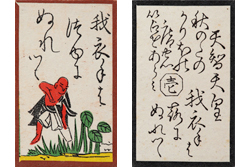 我衣手は
つゆに
ぬれつゝ
天智天皇
秋のたの
かりほの
庵の
苫をあらみ
壱
我衣手は
露に
ぬれて